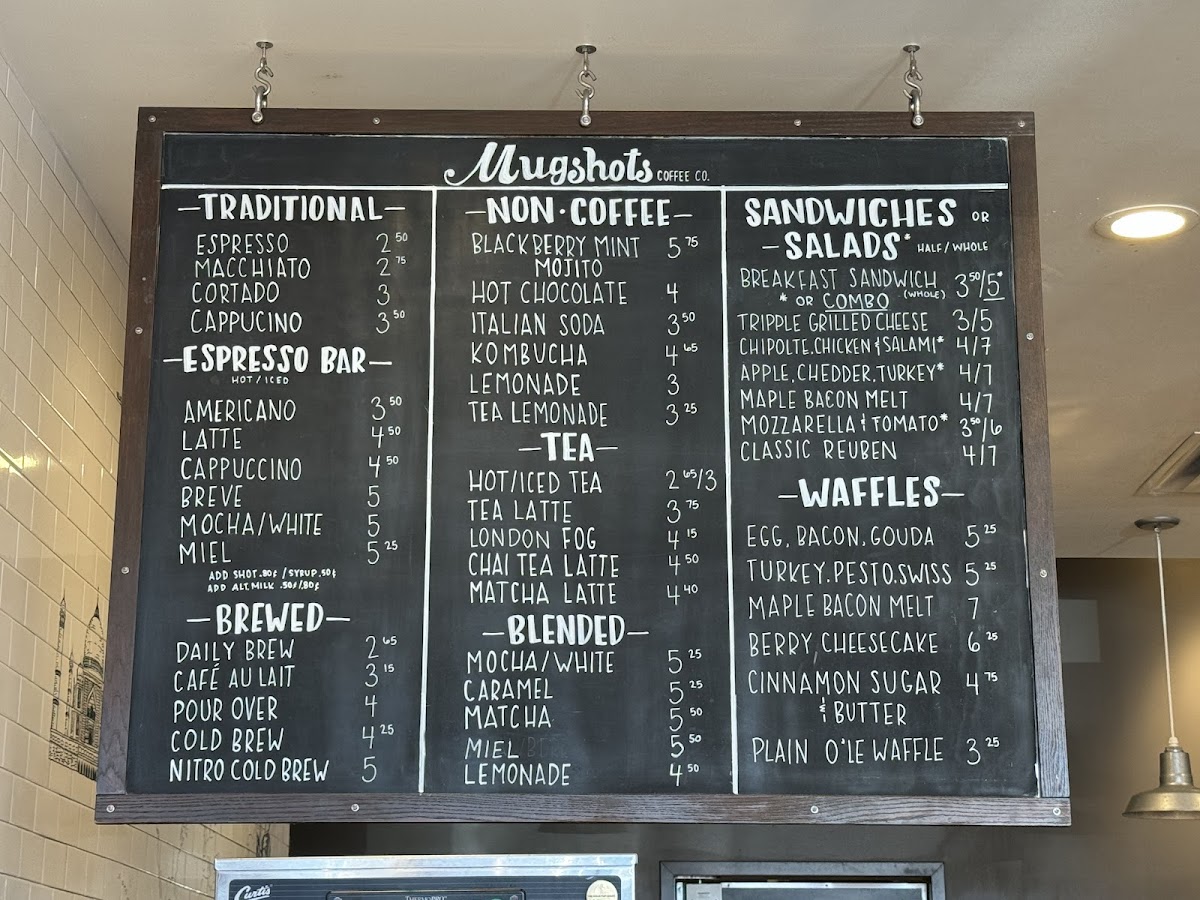 Mugshots COFFEE CO.
-TRADITIONAL-
ESPRESSO 2 50
MACCHIATO 2 75
CORTADO 3
CAPPUCINO 3 50
-ESPRESSO BAR-
HOT/ICED
AMERICANO 3 50
LATTE 4 50
CAPPUCCINO 4 50
BREVE 5
MOCHA/WHITE 5
MIEL 5 25
ADD SHOT .80¢ / SYRUP .50¢
ADD ALT. MILK .50¢/.80¢
-BREWED-
DAILY BREW 2 65
CAFÉ AU LAIT 3 15
POUR OVER 4
COLD BREW 4 25
NITRO COLD BREW 5
-NON·COFFEE-
BLACKBERRY MINT 5 75
MOJITO
HOT CHOCOLATE 4
ITALIAN SODA 3 50
KOMBUCHA 4 65
LEMONADE 3
TEA LEMONADE 3 25
-TEA-
HOT/ICED TEA 2 65/3
TEA LATTE 3 75
LONDON FOG 4 15
CHAI TEA LATTE 4 50
MATCHA LATTE 4 40
-BLENDED-
MOCHA/WHITE 5 25
CARAMEL 5 25
MATCHA 5 50
MIEL 5 50
LEMONADE 4 50
SANDWICHES OR
-SALADS* HALF/WHOLE
BREAKFAST SANDWICH 3 50/5*
* OR COMBO (WHOLE)
TRIPPLE GRILLED CHEESE 3/5
CHIPOLTE.CHICKEN & SALAMI* 4/7
APPLE, CHEDDER, TURKEY* 4/7
MAPLE BACON MELT 4/7
MOZZARELLA & TOMATO* 3 50/6
CLASSIC REUBEN 4/7
-WAFFLES-
EGG, BACON, GOUDA 5 25
TURKEY.PESTO.SWISS 5 25
MAPLE BACON MELT 7
BERRY, CHEESECAKE 6 25
CINNAMON SUGAR 4 75
& BUTTER
PLAIN O'LE WAFFLE 3 25
Curtis
THERMOPRO